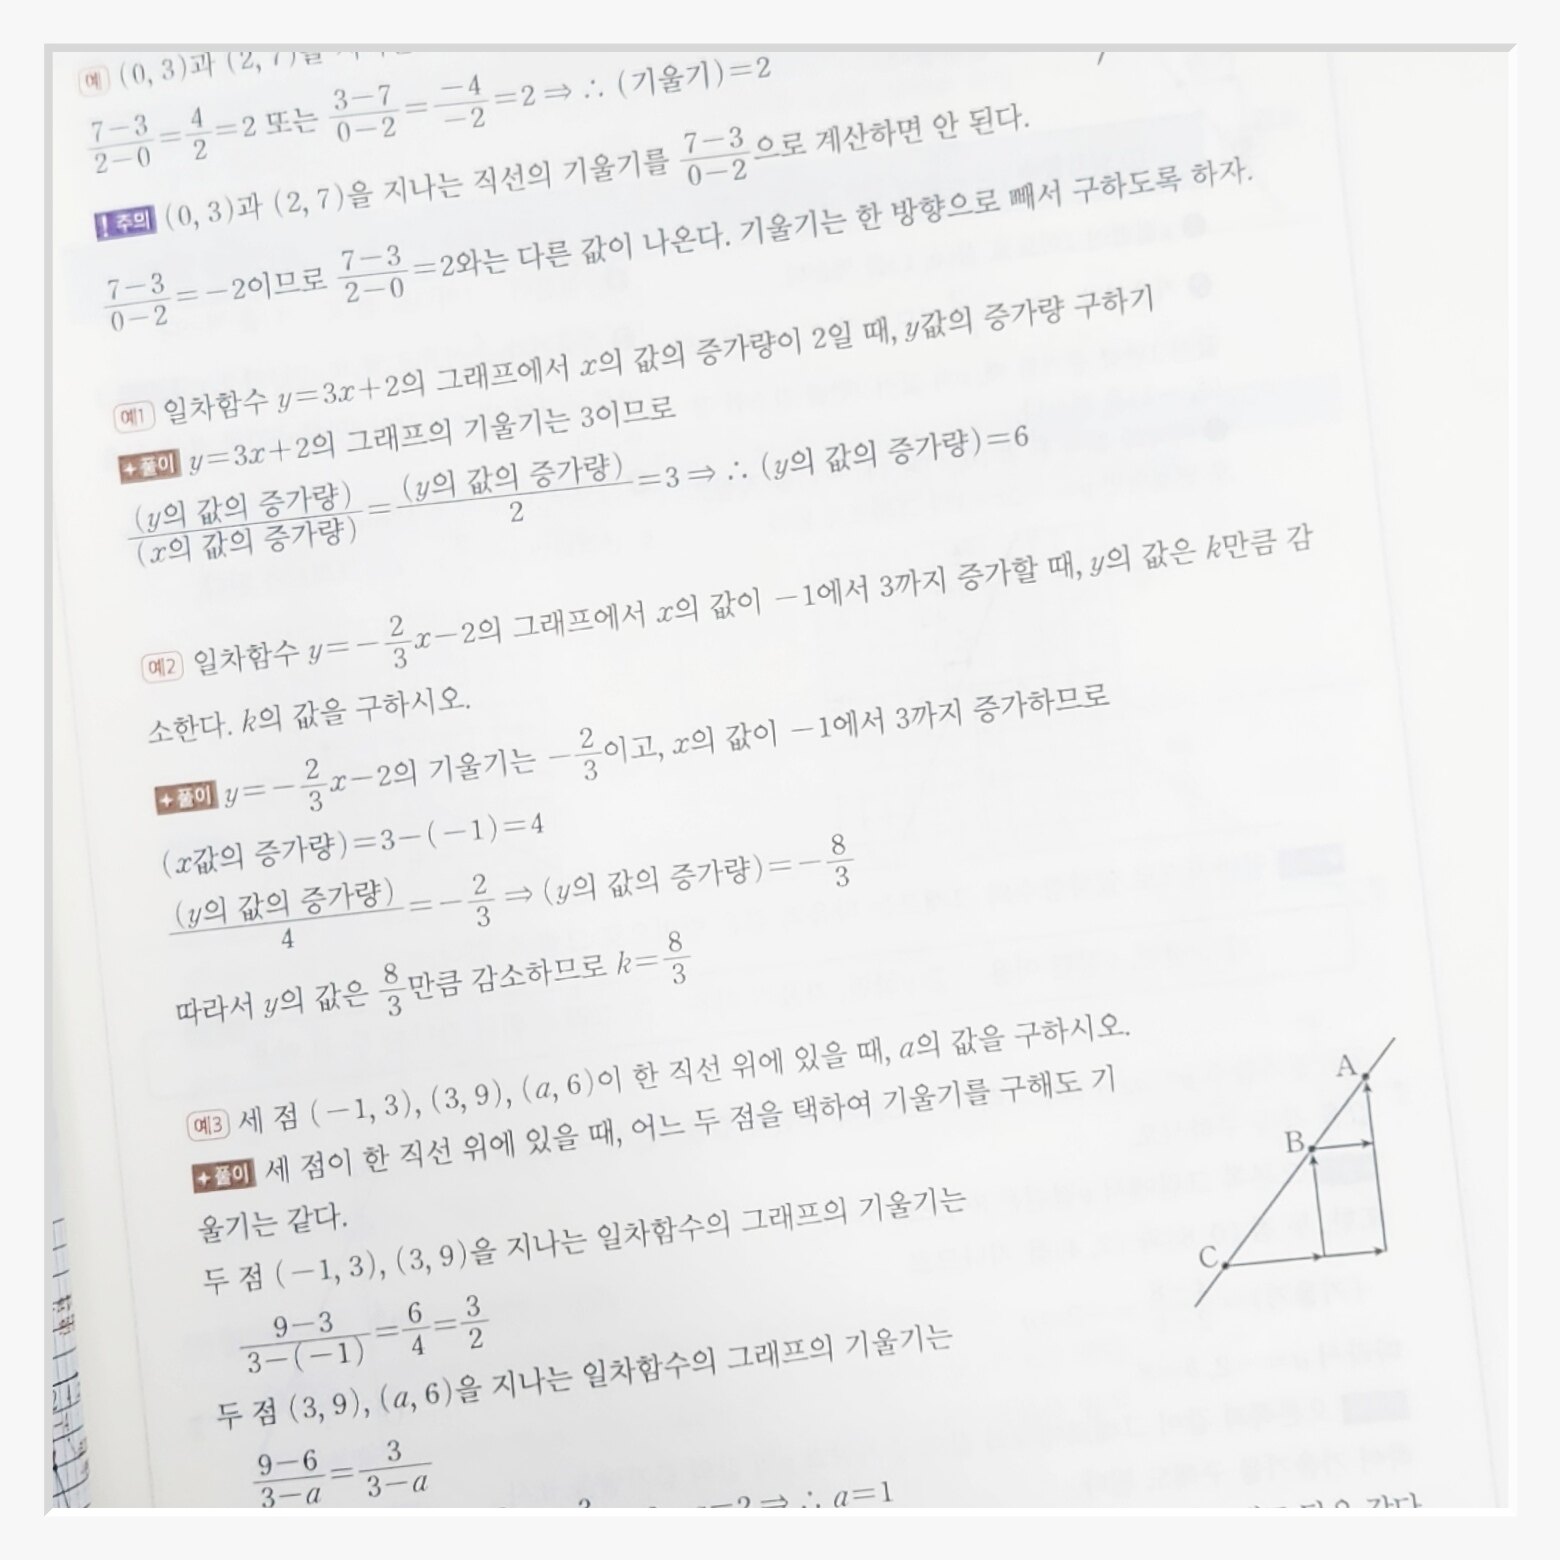 예 (0, 3)과 (2, 7)을
7-3/2-0=4/2=2 또는 3-7/0-2=-4/-2=2⇒∴ (기울기)=2
! 주의 (0, 3)과 (2, 7)을 지나는 직선의 기울기를 7-3/0-2으로 계산하면 안 된다.
7-3/0-2=-2이므로 7-3/2-0=2와는 다른 값이 나온다. 기울기는 한 방향으로 빼서 구하도록 하자.
예1 일차함수 y=3x+2의 그래프에서 x의 값의 증가량이 2일 때, y값의 증가량 구하기
+풀이 y=3x+2의 그래프의 기울기는 3이므로
(y의 값의 증가량)/(x의 값의 증가량)=(y의 값의 증가량)/2=3⇒∴ (y의 값의 증가량)=6
예2 일차함수 y=-2/3x-2의 그래프에서 x의 값이 -1에서 3까지 증가할 때, y의 값은 k만큼 감
소한다. k의 값을 구하시오.
+풀이 y=-2/3x-2의 기울기는 -2/3이고, x의 값이 -1에서 3까지 증가하므로
(x값의 증가량)=3-(-1)=4
(y의 값의 증가량)/4=-2/3⇒(y의 값의 증가량)=-8/3
따라서 y의 값은 8/3만큼 감소하므로 k=8/3
예3 세 점 (-1, 3), (3, 9), (a, 6)이 한 직선 위에 있을 때, a의 값을 구하시오.
+풀이 세 점이 한 직선 위에 있을 때, 어느 두 점을 택하여 기울기를 구해도 기
울기는 같다.
두 점 (-1, 3), (3, 9)을 지나는 일차함수의 그래프의 기울기는
9-3/3-(-1)=6/4=3/2
두 점 (3, 9), (a, 6)을 지나는 일차함수의 그래프의 기울기는
9-6/3-a=3/3-a
⇒∴ a=1
A
B
C